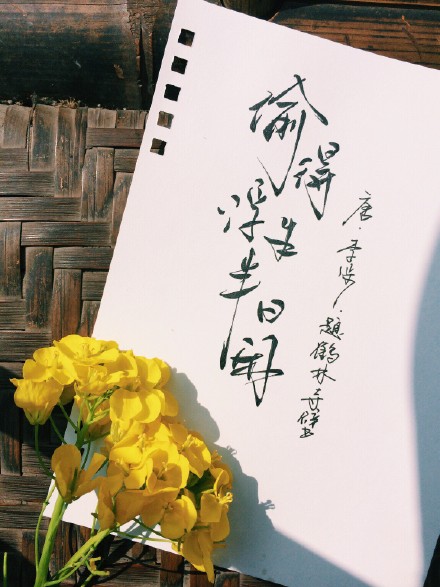 偷得
浮生
半日闲
唐·李涉·题鹤林寺壁